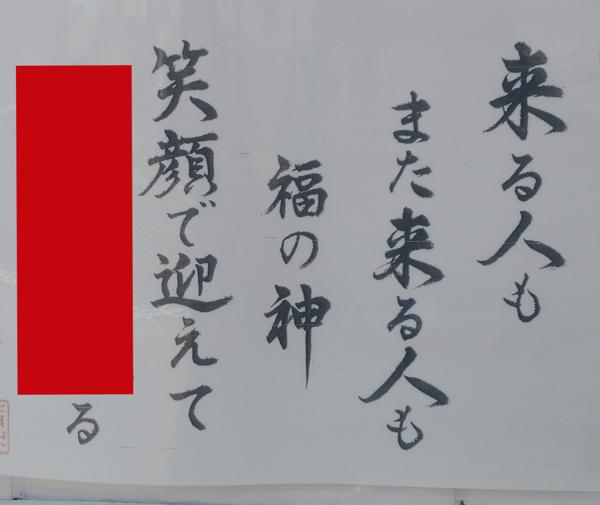 来る人も
また来る人も
福の神
笑顔で迎えて
る